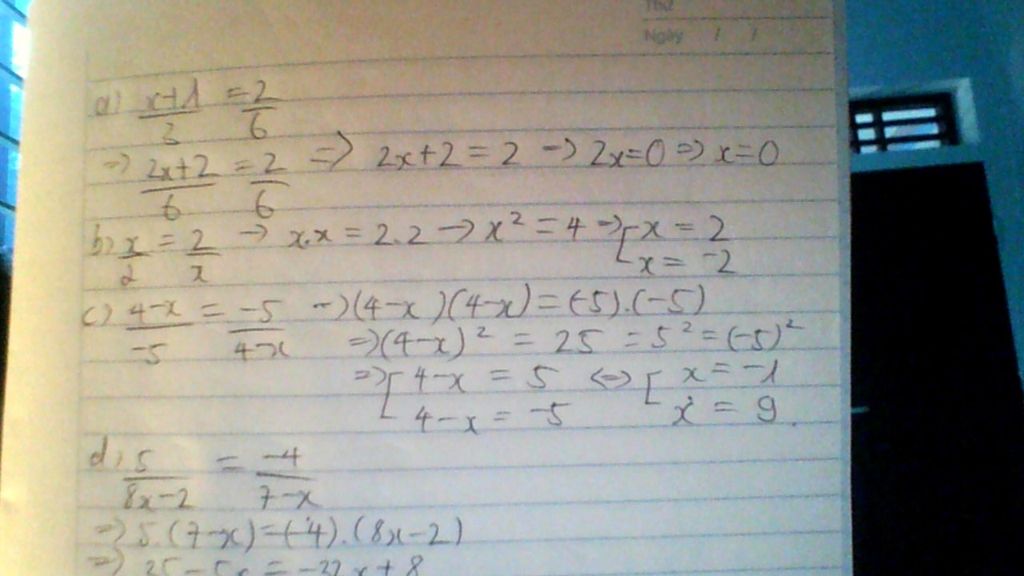 Thứ
Ngày / /
a) (x+1)/3 = 2/6
=> (2x+2)/6 = 2/6 => 2x+2 = 2 -> 2x=0 => x=0
b) x/2 = 2/x -> x.x = 2.2 -> x² = 4 => [x = 2
[x = -2
c) (4-x)/-5 = -5/(4-x) -> (4-x)(4-x) = (-5).(-5)
=> (4-x)² = 25 = 5² = (-5)²
=> [4-x = 5 <=> [x = -1
[4-x = -5 [x = 9.
d) 5/(8x-2) = -4/(7-x)
=> 5.(7-x)=(-4).(8x-2)
=> 35-5x = -32x+8